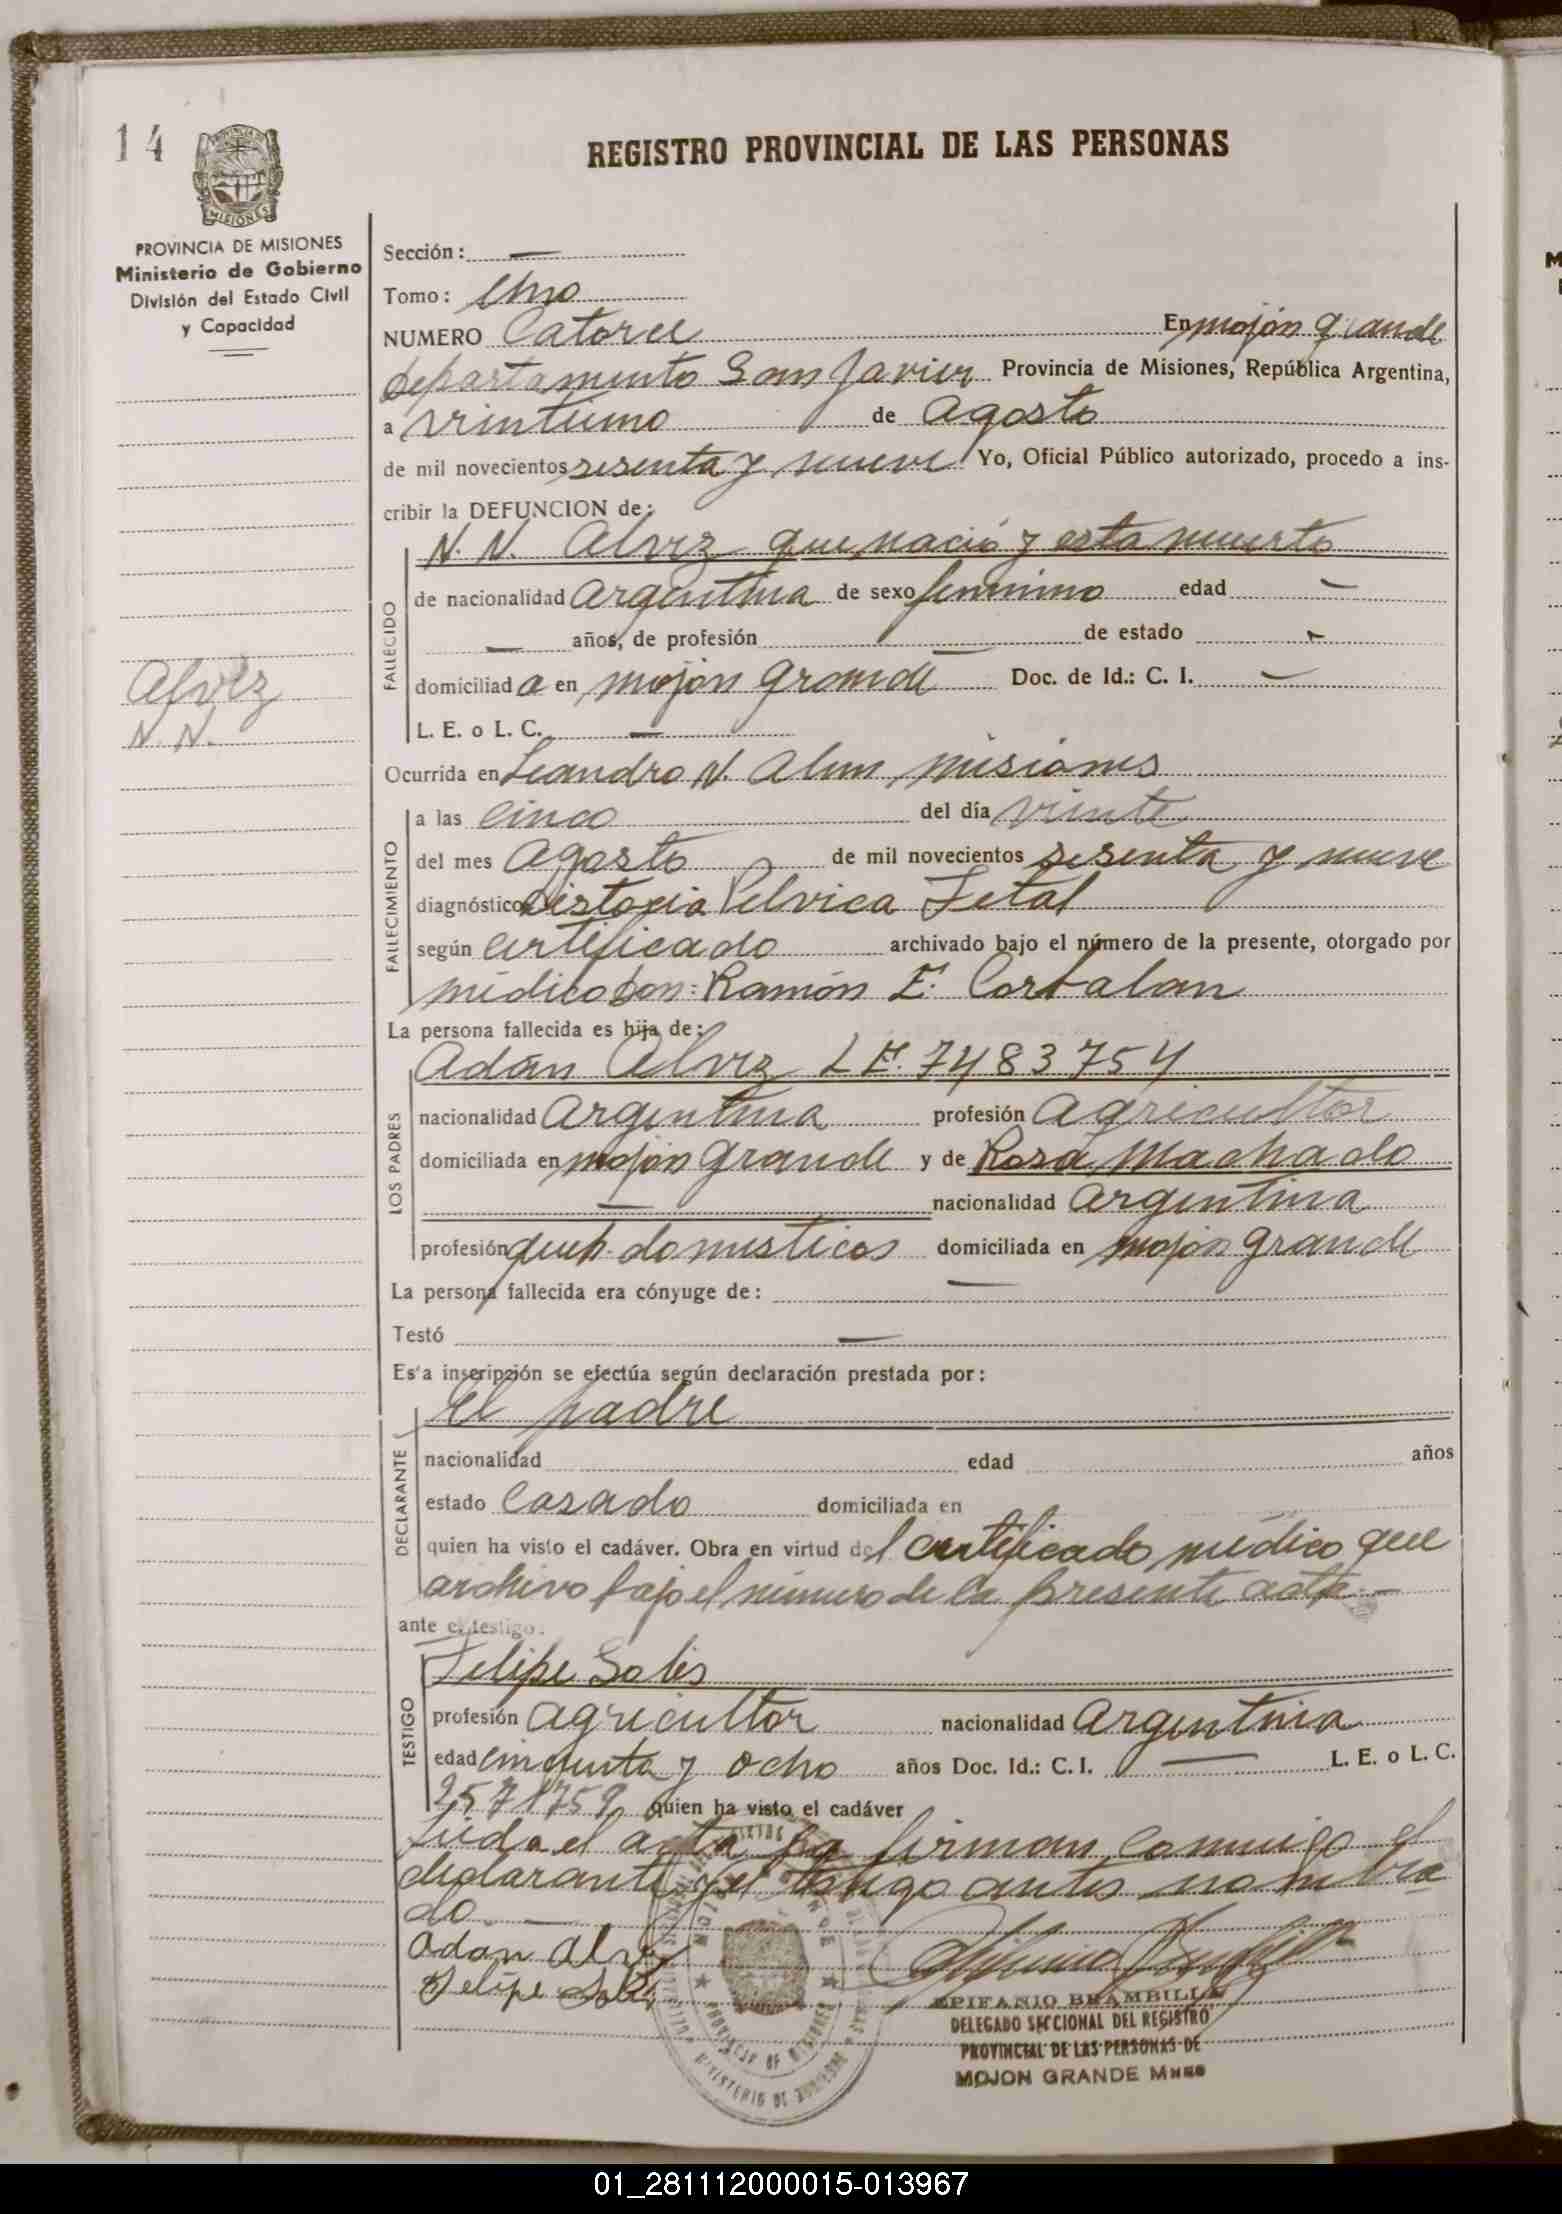 14
PROVINCIA DE MISIONES
Ministerio de Gobierno
División del Estado Civil
y Capacidad
REGISTRO PROVINCIAL DE LAS PERSONAS
Sección: —
Tomo: Uno
NUMERO Catorce En mojón grande
departamento San Javier Provincia de Misiones, República Argentina,
a veintiuno de Agosto
de mil novecientos sesenta y nueve Yo, Oficial Público autorizado, procedo a ins-
cribir la DEFUNCION de:
N. N. Alvez que nació y esta muerto
FALLECIDO
de nacionalidad Argentina de sexo femenino edad —
— años, de profesión — de estado -
domiciliada en mojón grande Doc. de Id.: C. I. —
L. E. o L. C. —
Alvez
N. N.
Ocurrida en Leandro N. Alem misiones
FALLECIMIENTO
a las cinco del día veinte
del mes Agosto de mil novecientos sesenta y nueve
diagnóstico Distocia Pelvica Fetal
según certificado archivado bajo el número de la presente, otorgado por
médico Don: Ramón E. Corbalan
La persona fallecida es hija de:
Adán Alvez L E. 7483754
LOS PADRES
nacionalidad Argentina profesión Agricultor
domiciliada en mojón grande y de Rosa Machado
— nacionalidad Argentina
profesión queh. domesticos domiciliada en mojón grande
La persona fallecida era cónyuge de: —
Testó —
Esta inscripción se efectúa según declaración prestada por:
El padre
DECLARANTE
nacionalidad edad años
estado Casado domiciliada en
quien ha visto el cadáver. Obra en virtud del certificado médico que
archivo bajo el número de la presente acta.—
ante el testigo:
Felipe Solis
TESTIGO
profesión Agricultor nacionalidad Argentina
edad cincuenta y ocho años Doc. Id.: C. I. — L. E. o L. C.
2571759 quien ha visto el cadáver
Leida el acta la firman conmigo el
declarante y el testigo antes nombra
do. —
Adan Alvez
Felipe Solis
EPIFANIO BRAMBILLA
DELEGADO SECCIONAL DEL REGISTRO
PROVINCIAL DE LAS PERSONAS DE
MOJON GRANDE Mnes
PROVINCIA DE MISIONES
MINISTERIO DE GOBIERNO
01_281112000015-013967